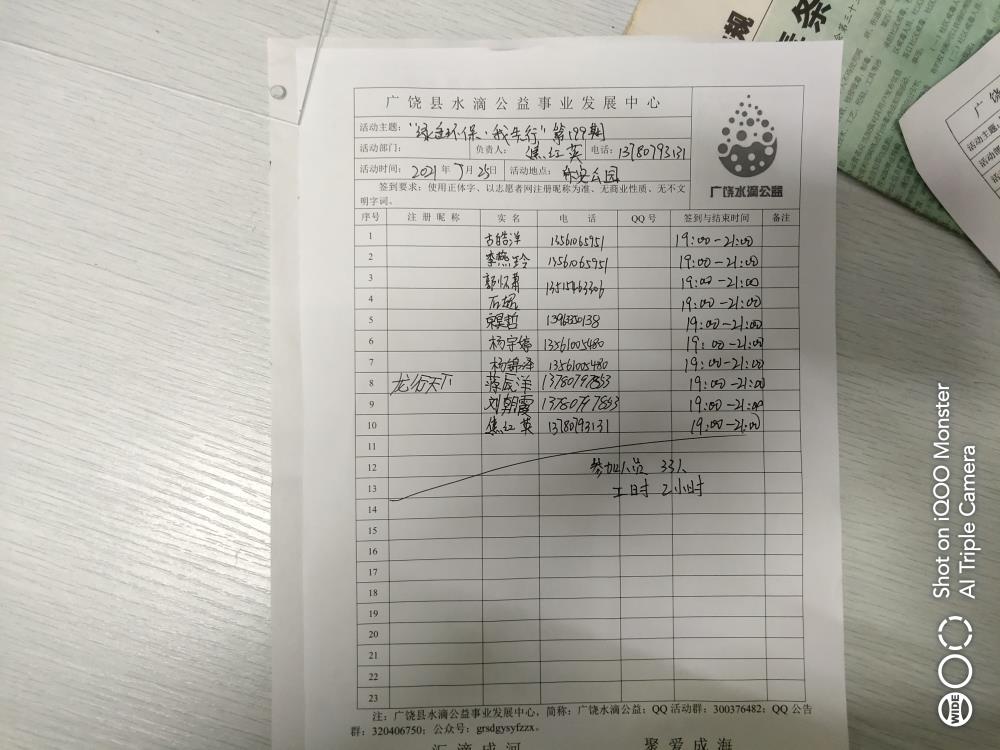 广饶县水滴公益事业发展中心
活动主题："绿色环保·我先行"第199期
活动部门： 负责人：焦红英 电话：13780793131
活动时间：2021年7月25日 活动地点：乐安公园
签到要求：使用正体字、以志愿者网注册昵称为准、无商业性质、无不文
明字词。
广饶水滴公益
序号 注册昵称 实名 电话 QQ号 签到与结束时间 备注
1 古皓洋 13561065951 19:00-21:00
2 李燕玲 13561065951 19:00-21:00
3 郭怀 19:00-21:00
4 石 19:00-21:00
5 昊哲 19:00-21:00
6 杨宇婷 13561005480 19:00-21:00
7 杨锦泽 13561005480 19:00-21:00
8 龙行天下 蒋辰洋 13780797853 19:00-21:00
9 刘朝霞 13780797853 19:00-21:00
10 焦红英 13780793131 19:00-21:00
11
12 参加人员 33人
13 工时 2小时
14
15
16
17
18
19
20
21
22
23
注：广饶县水滴公益事业发展中心，简称：广饶水滴公益；QQ活动群：300376482；QQ公告
群：320406750；公众号：grsdgysyfzzx。
汇滴成河 聚爱成海
Shot on iQOO Monster
AI Triple Camera
WIDE